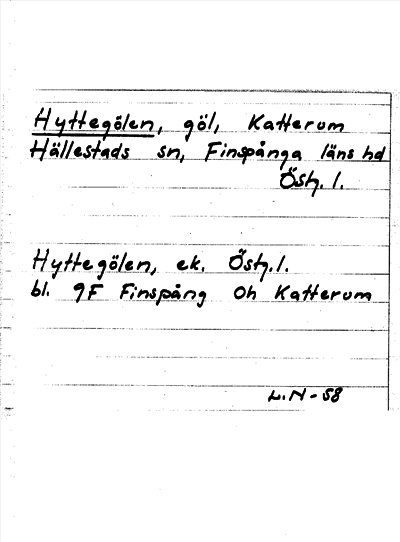 Hyttegölen, göl, Katterum
Hällestads sn, Finspånga läns hd
Östg. l.
Hyttegölen, ek. Östg. l.
bl. 9F Finspång Oh Katterum
L.N-58